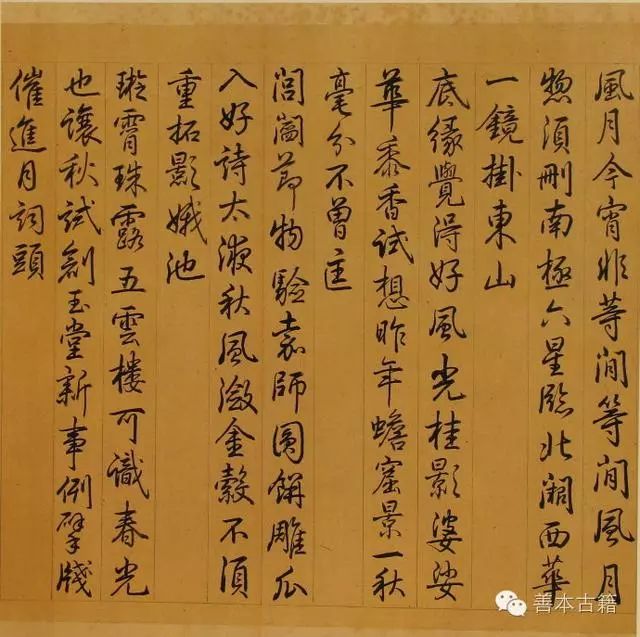 風月今宵非等閒等閒風月
惣須刪南極六星臨北闕西華
一鏡掛東山
底緣覺得好風光桂影婆娑
華黍香試想昨年蟾窟景一秋
毫分不曾誑
閶闔節物驗嘉師圓餅雕瓜
入好詩太液秋風激金縠不須
重拓影娥池
璇霄珠露五雲樓可識春光
也讓秋試創玉堂新事例擘牋
催進月詞頭
善本古籍